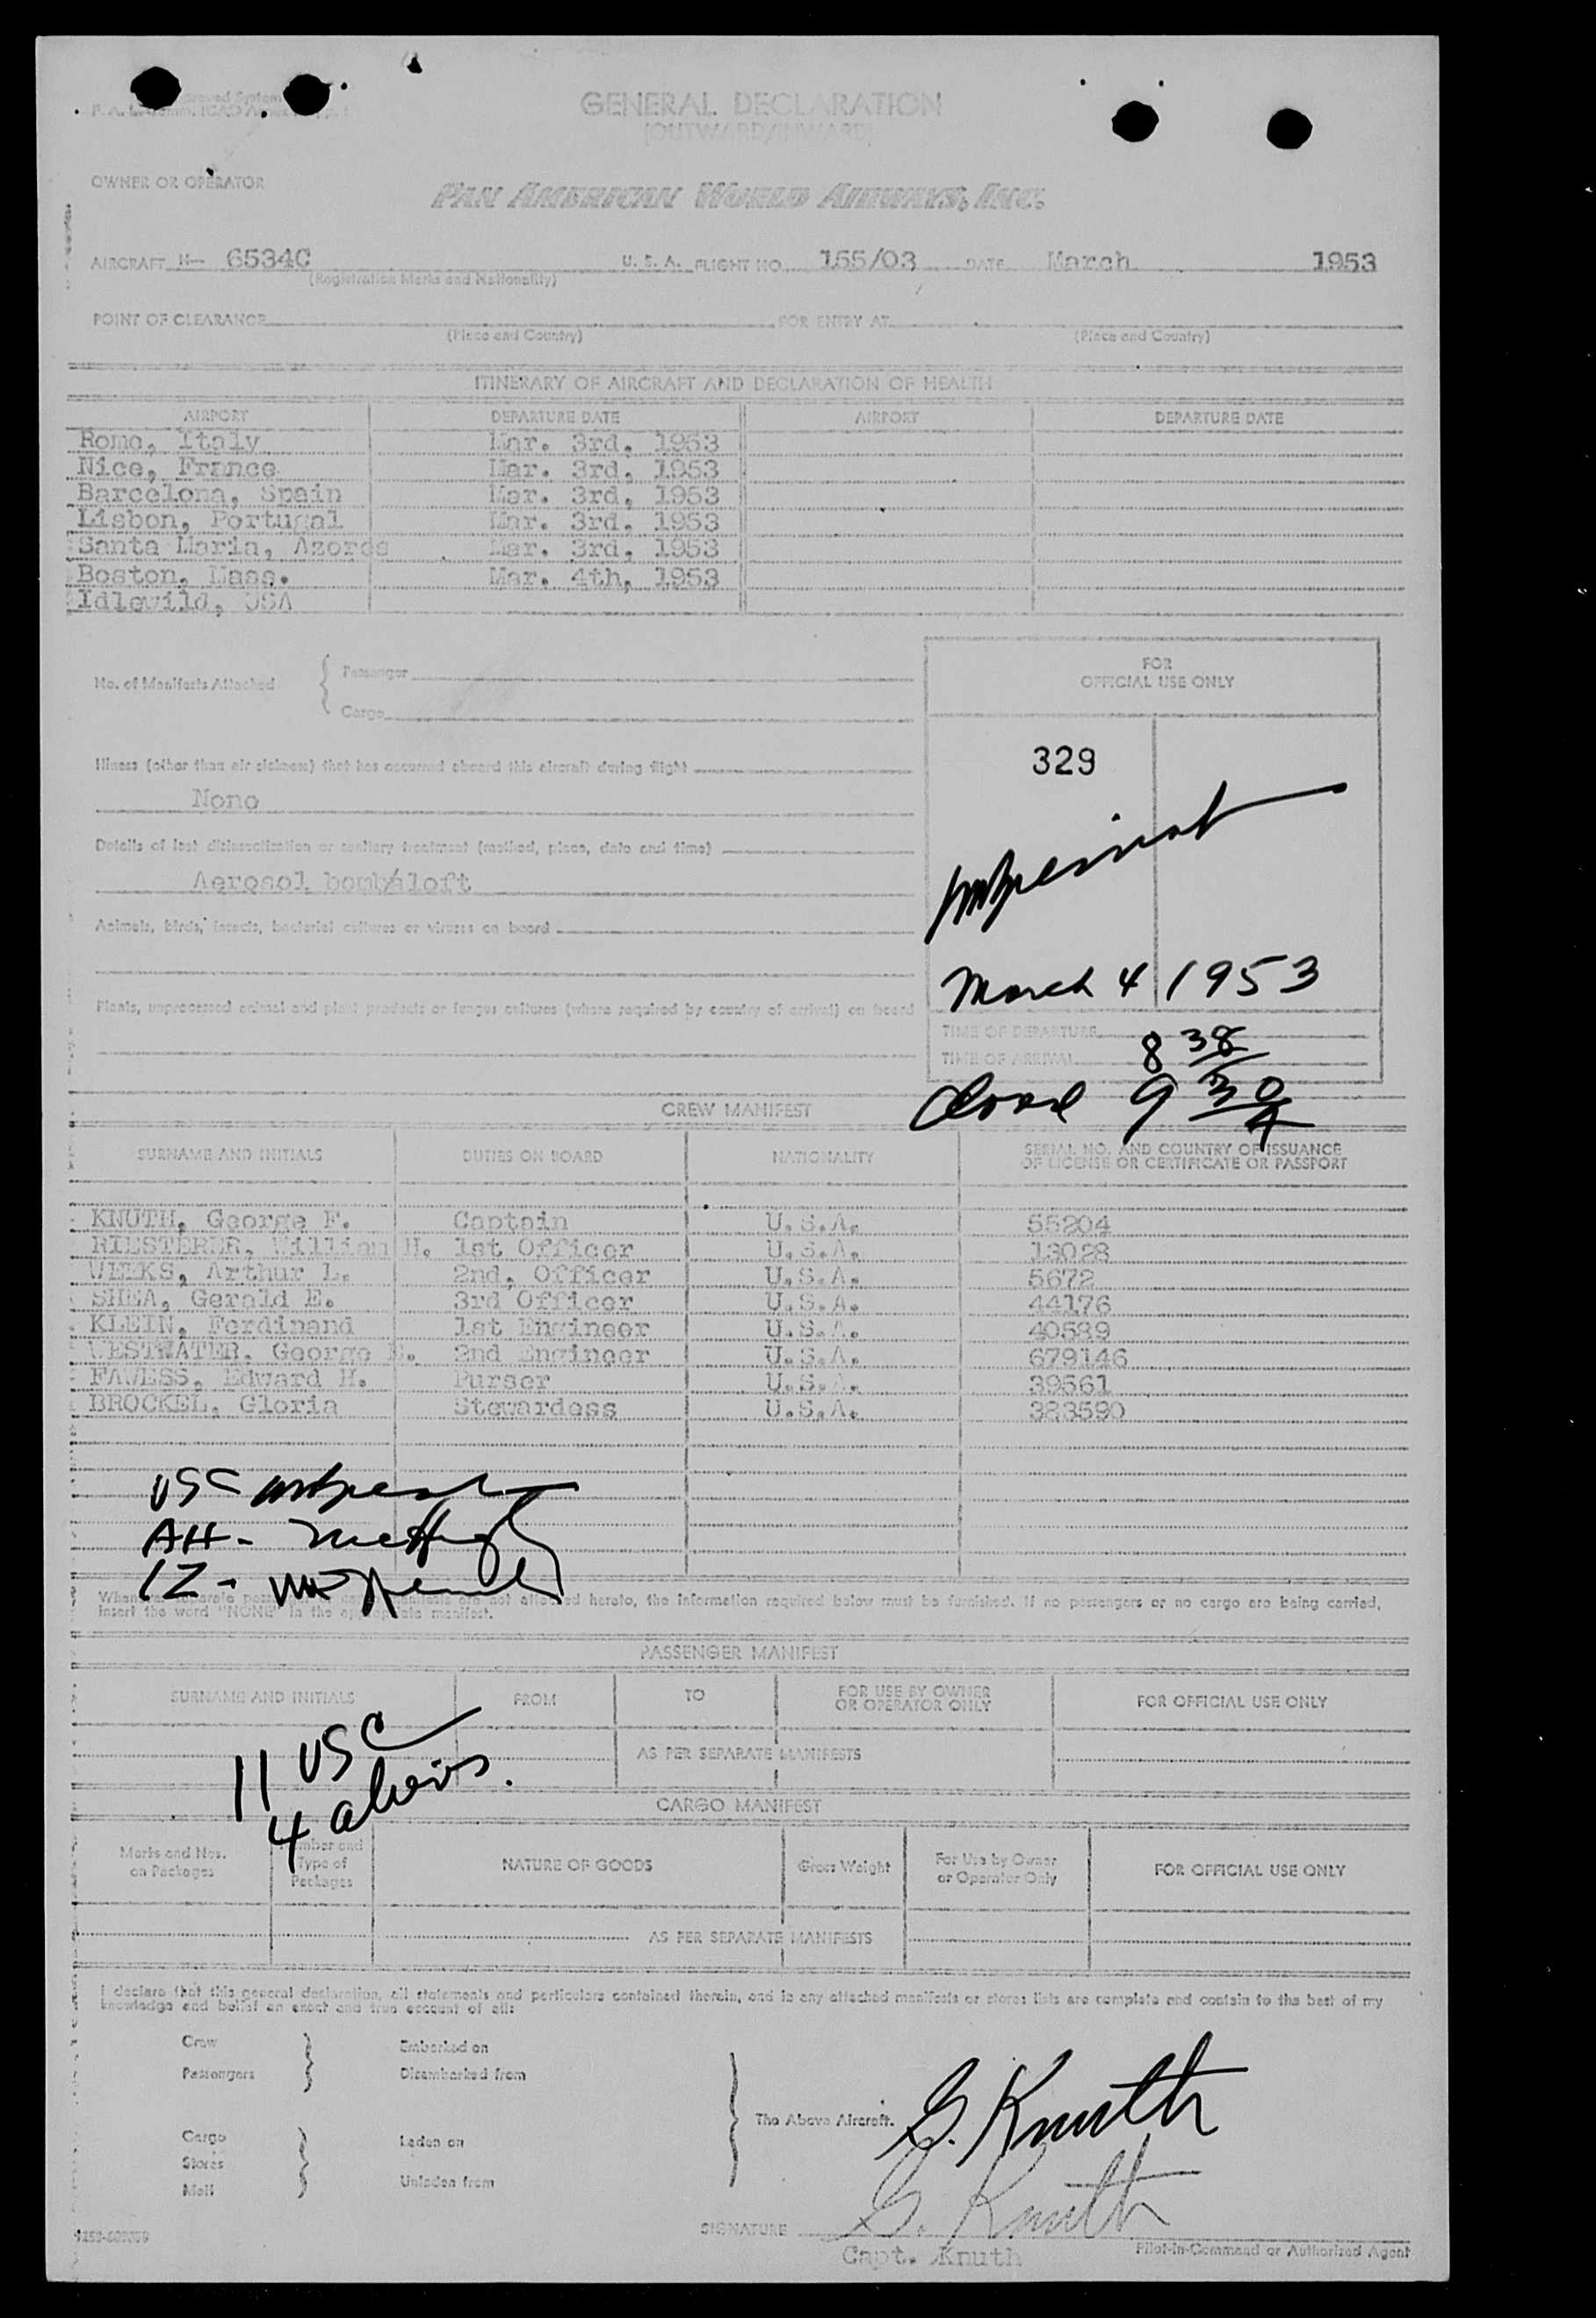 GENERAL DECLARATION
(OUTWARD/INWARD)
OWNER OR OPERATOR
PAN AMERICAN WORLD AIRWAYS, INC.
AIRCRAFT N- 6534C U. S. A. FLIGHT NO. 155/03 DATE March 1953
(Registration Marks and Nationality)
POINT OF CLEARANCE FOR ENTRY AT
(Place and Country) (Place and Country)
ITINERARY OF AIRCRAFT AND DECLARATION OF HEALTH
AIRPORT DEPARTURE DATE AIRPORT DEPARTURE DATE
Rome, Italy Mar. 3rd, 1953
Nice, France Mar. 3rd, 1953
Barcelona, Spain Mar. 3rd, 1953
Lisbon, Portugal Mar. 3rd, 1953
Santa Maria, Azores Mar. 3rd, 1953
Boston, Mass. Mar. 4th, 1953
Idlewild, USA
No. of Manifests Attached
Passenger
Cargo
FOR
OFFICIAL USE ONLY
329
Illness (other than air sickness) that has occurred aboard this aircraft during flight
None
Details of last disinsectization or sanitary treatment (method, place, date and time)
Aerosol bomb/aloft
Animals, birds, insects, bacterial cultures or viruses on board
March 4 1953
Plants, unprocessed animal and plant products or fungus cultures (where required by country of arrival) on board
TIME OF DEPARTURE
TIME OF ARRIVAL 8 38
9 30 A
CREW MANIFEST
SURNAME AND INITIALS DUTIES ON BOARD NATIONALITY SERIAL NO. AND COUNTRY OF ISSUANCE
OF LICENSE OR CERTIFICATE OR PASSPORT
KNUTH, George F. Captain U.S.A. 55204
RIESTERER, William H. 1st Officer U.S.A. 13028
WEEKS, Arthur L. 2nd, Officer U.S.A. 5672
SHEA, Gerald E. 3rd Officer U.S.A. 44176
KLEIN, Ferdinand 1st Engineer U.S.A. 40589
WESTWATER, George 2nd Engineer U.S.A. 679146
FAWESS, Edward H. Purser U.S.A. 39561
BROCKEL, Gloria Stewardess U.S.A. 383590
USC
AH-
IZ-
Whenever separate passenger or cargo manifests are not attached hereto, the information required below must be furnished. If no passengers or no cargo are being carried,
insert the word "NONE" in the appropriate manifest.
PASSENGER MANIFEST
SURNAME AND INITIALS FROM TO FOR USE BY OWNER
OR OPERATOR ONLY FOR OFFICIAL USE ONLY
11 USC
AS PER SEPARATE MANIFESTS
4 aliens.
CARGO MANIFEST
Marks and Nos.
on Packages Number and
Type of
Packages NATURE OF GOODS Gross Weight For Use by Owner
or Operator Only FOR OFFICIAL USE ONLY
AS PER SEPARATE MANIFESTS
I declare that this general declaration, all statements and particulars contained therein, and in any attached manifests or stores lists are complete and contain to the best of my
knowledge and belief an exact and true account of all:
Crew Embarked on
Passengers Disembarked from
The Above Aircraft. G. Knuth
Cargo Laden on
Stores
Mail Unladen from
SIGNATURE G. Knuth
Capt. Knuth Pilot-in-Command or Authorized Agent